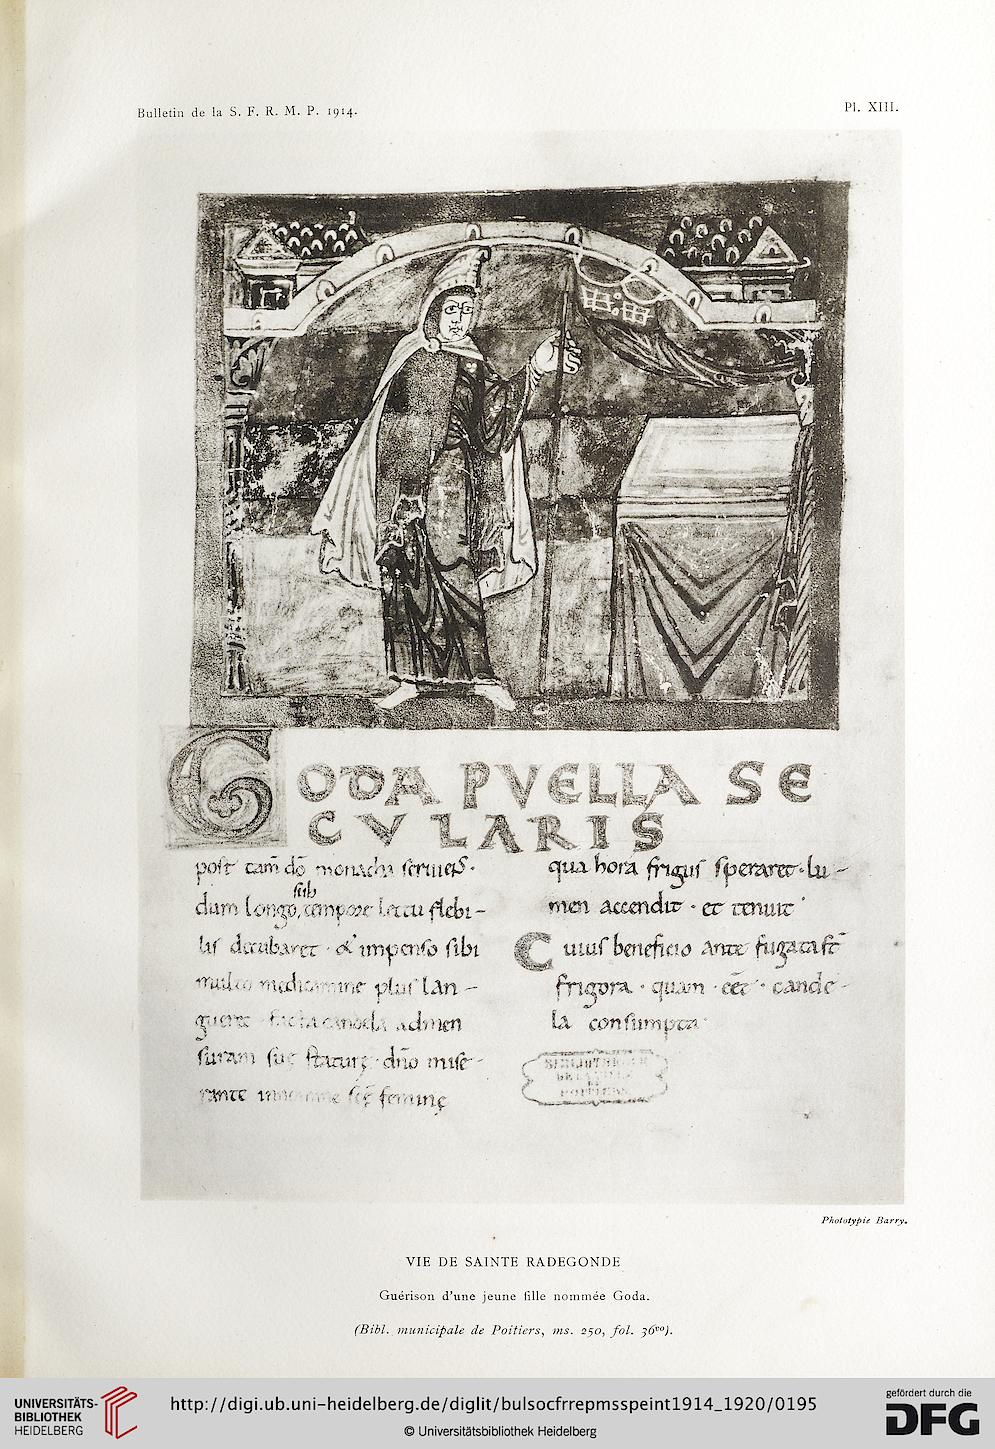 Bulletin de la S. F. R. M. P. 1914.
Pl. XIII.
GODA PVELLA SE
CVLARIS
post tam̄ dō monacha seruiens.
dum longo, tempore lectu flebi-
sub
lis decubaret · & impenso sibi
multo medicamine plus lan-
gueret facta candela admen
suram suę staturę · dn̄o mise-
rante scę feminę
qua hora frigus speraret · lu-
men accendit · et tenuit
Cuius beneficio ante fugata st̄
frigora · quam · eēt · cande-
la consumpta
BIBLIOTHEQUE
DE LA VILLE
POITIERS
Phototypie Barry.
VIE DE SAINTE RADEGONDE
Guérison d'une jeune fille nommée Goda.
(Bibl. municipale de Poitiers, ms. 250, fol. 36vo).
UNIVERSITÄTS-
BIBLIOTHEK
HEIDELBERG
http://digi.ub.uni-heidelberg.de/diglit/bulsocfrrepmsspeint1914_1920/0195
© Universitätsbibliothek Heidelberg
gefördert durch die
DFG